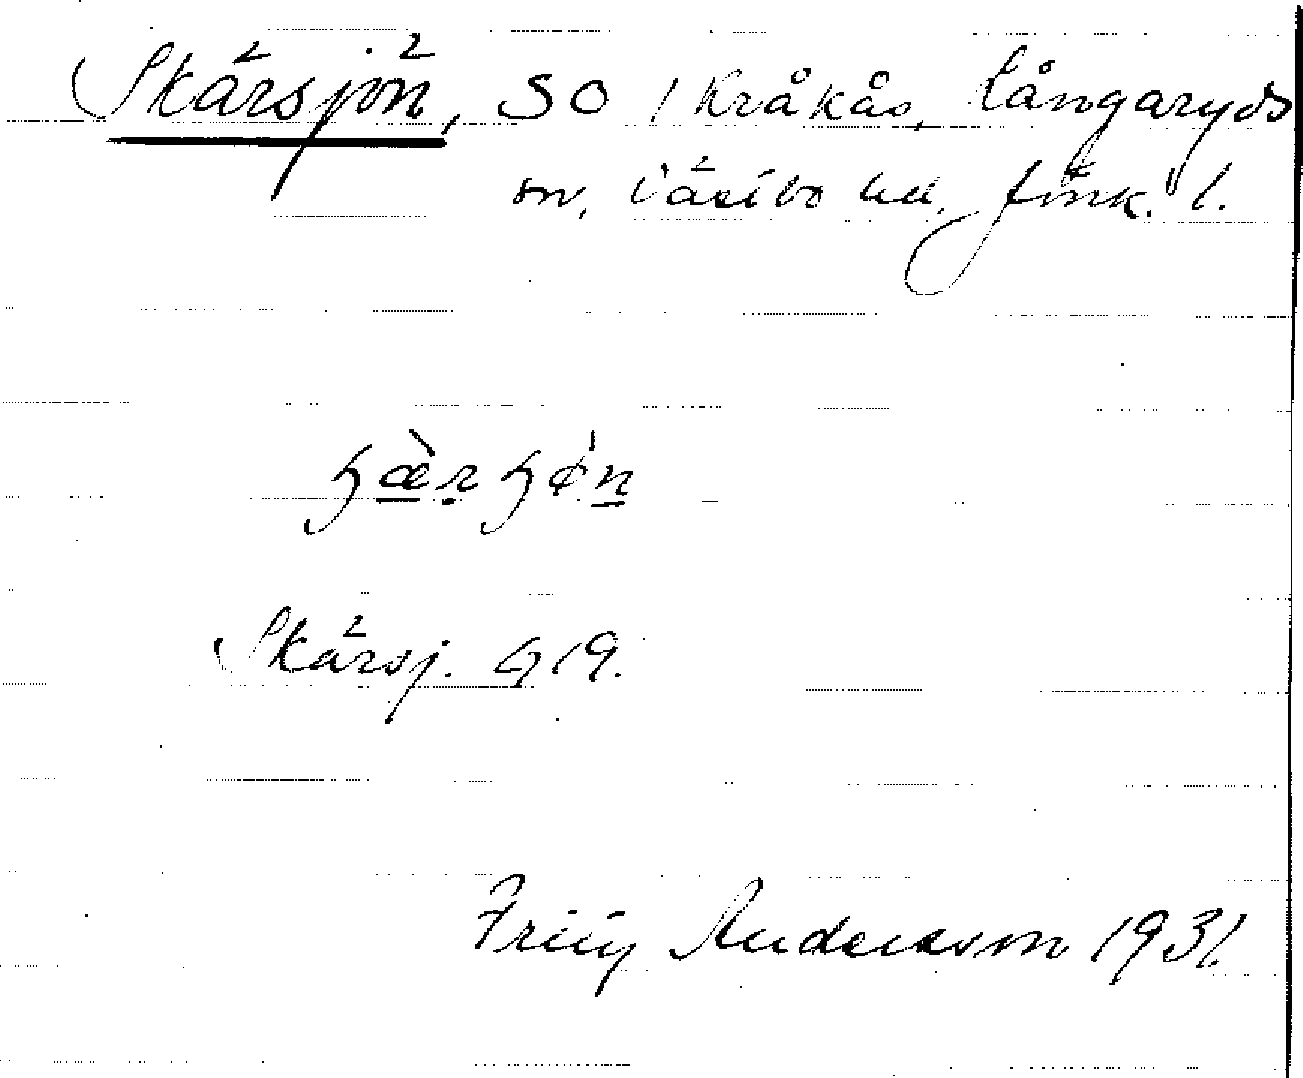 Skärsjön, SO / Kråkås, Långaryds
sn, Västbo hd, Jönk. l.
ɧæ̀rɧø̍n
Skärsj. G 19.
Frity Andersson 1931.